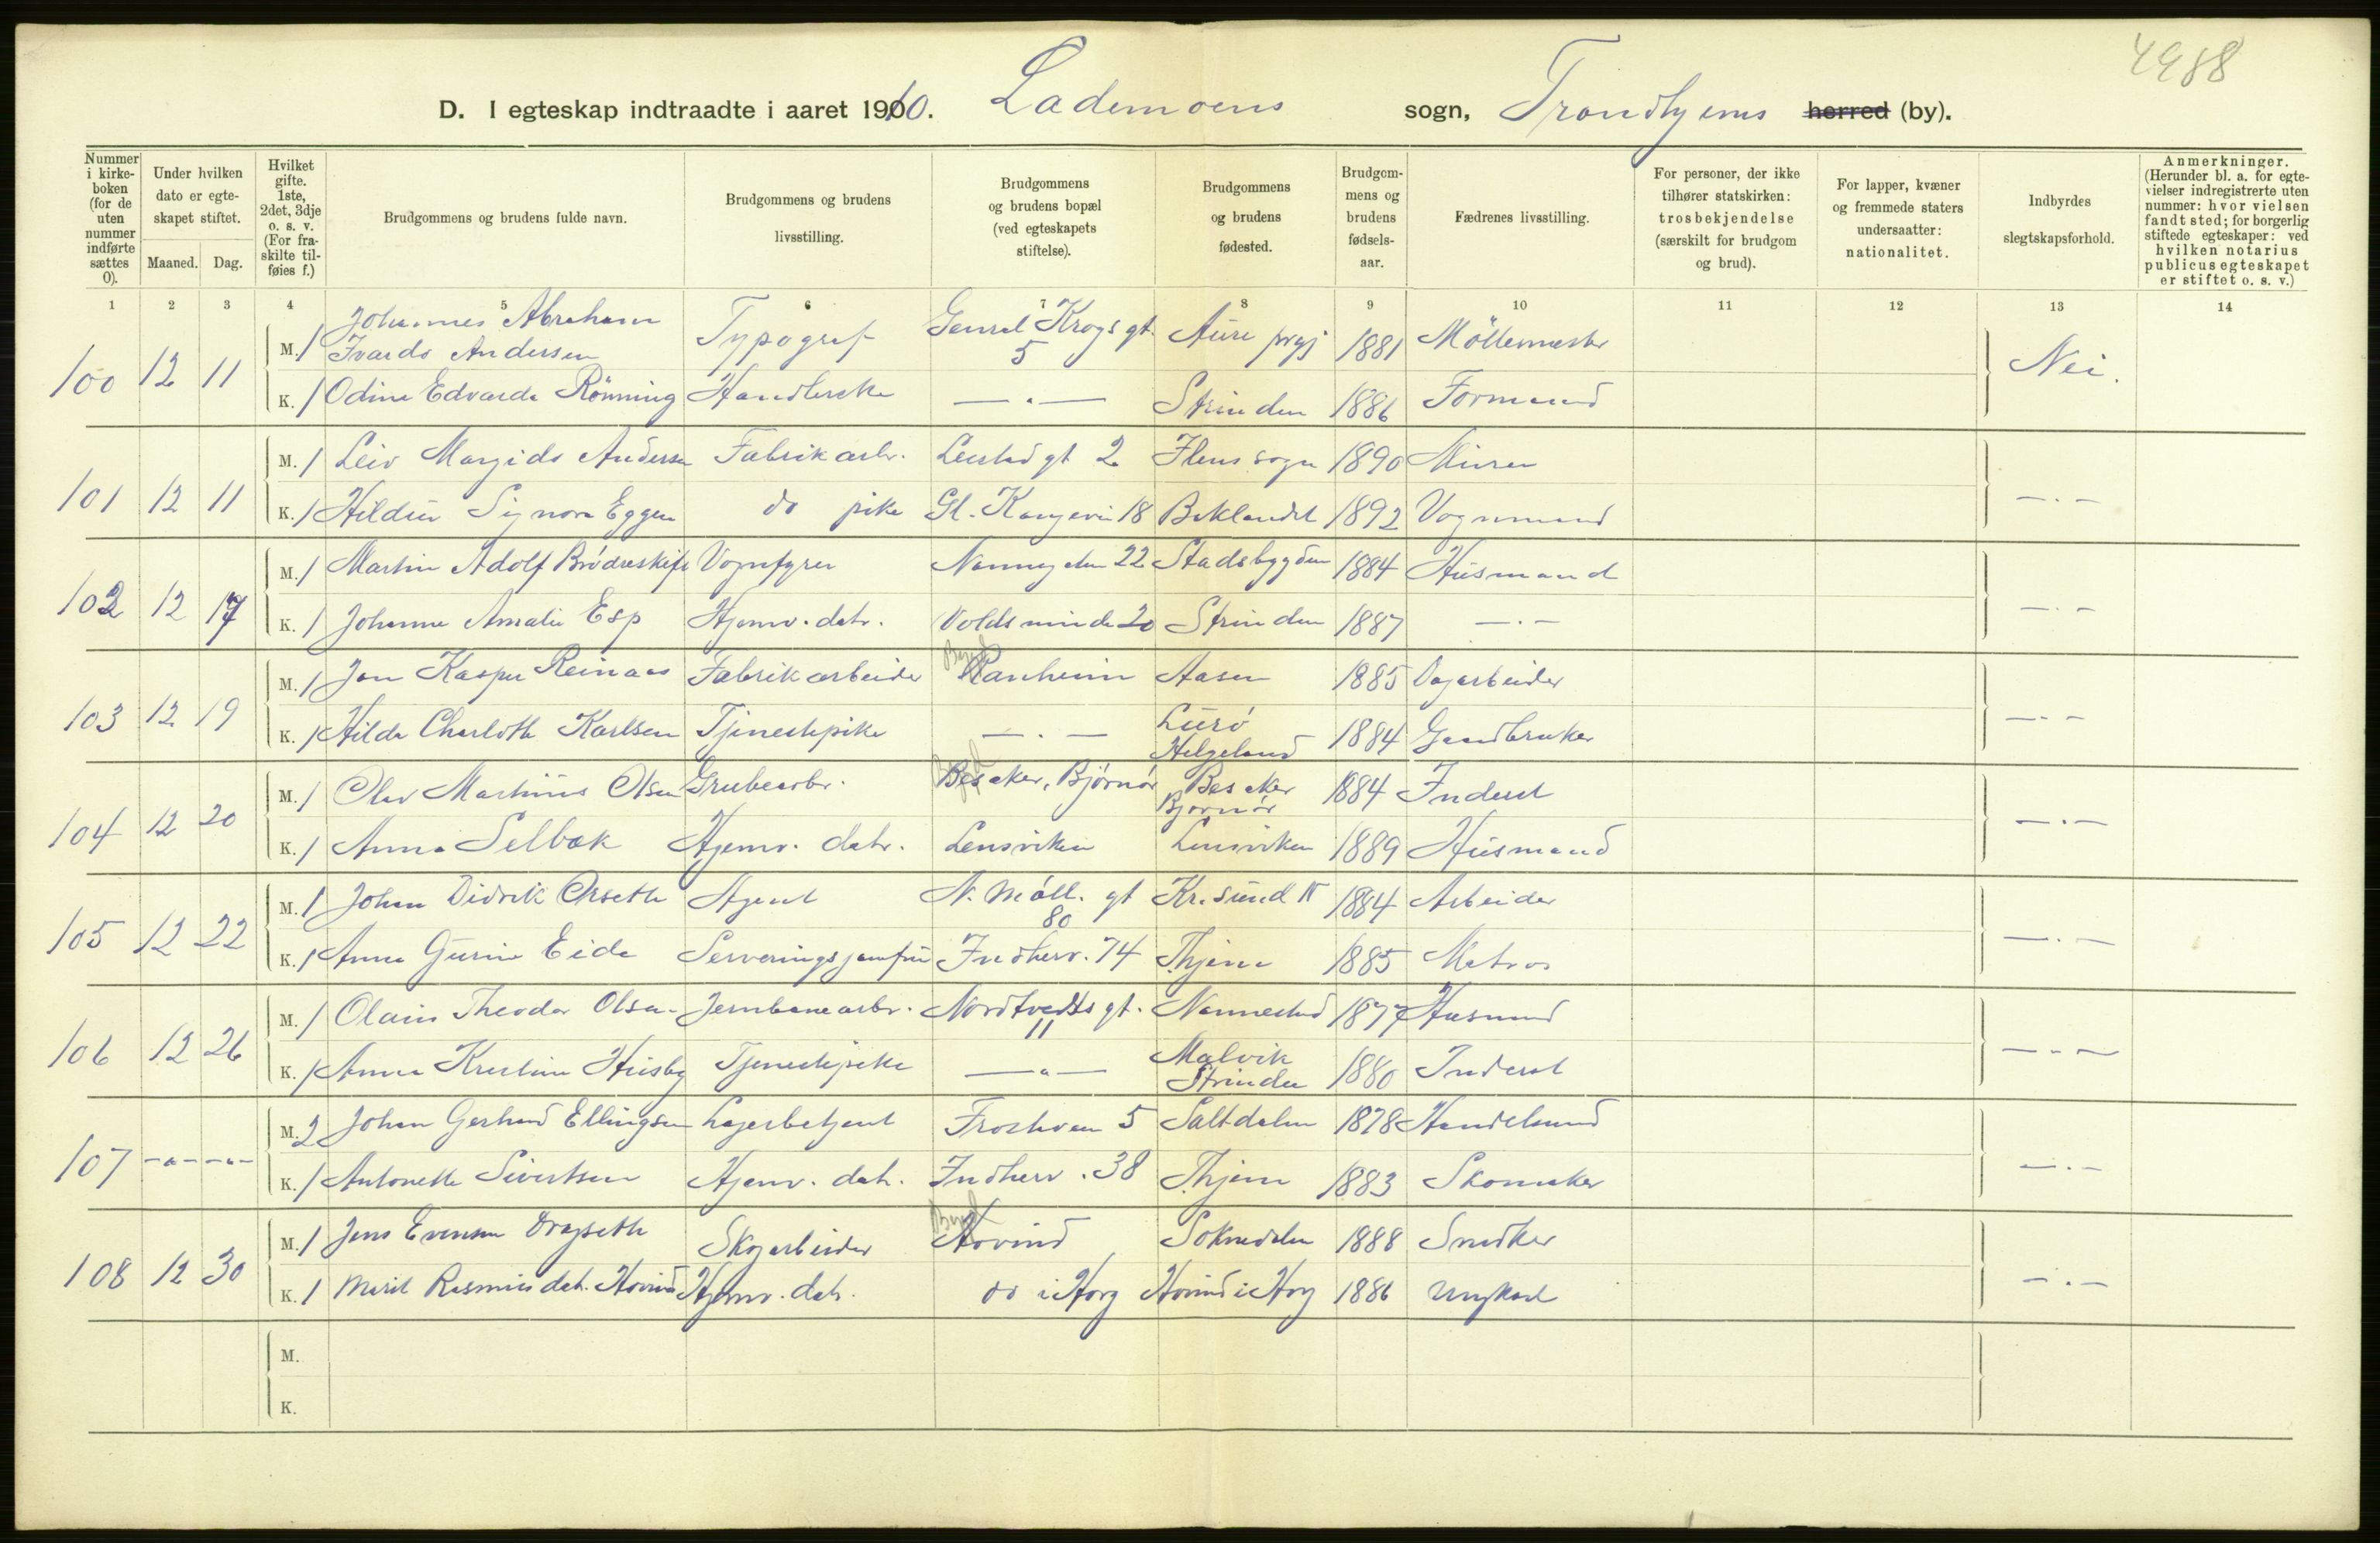 4988
D. I egteskap indtraadte i aaret 1910. Lademoens sogn, Trondhjems herred (by).
Nummer i kirkeboken (for de uten nummer indførte sættes 0).
Under hvilken dato er egteskapet stiftet.
Maaned. Dag.
Hvilket gifte. 1ste, 2det, 3dje o. s. v. (For fraskilte tilføies f.)
Brudgommens og brudens fulde navn.
Brudgommens og brudens livsstilling.
Brudgommens og brudens bopæl (ved egteskapets stiftelse).
Brudgommens og brudens fødested.
Brudgommens og brudens fødselsaar.
Fædrenes livsstilling.
For personer, der ikke tilhører statskirken: trosbekjendelse (særskilt for brudgom og brud).
For lapper, kvæner og fremmede staters undersaatter: nationalitet.
Indbyrdes slegtskapsforhold.
Anmerkninger. (Herunder bl. a. for egtevielser indregistrerte uten nummer: hvor vielsen fandt sted; for borgerlig stiftede egteskaper: ved hvilken notarius publicus egteskapet er stiftet o. s. v.)
1 2 3 4 5 6 7 8 9 10 11 12 13 14
100 12 11 M. 1 Johannes Abraham Ivards Andersen Typograf Genral Krogs gt. 5 Aure prgj 1881 Möllemester Nei.
K. 1 Odine Edvarda Rönning Handlerske —"— Strinden 1886 Formand
101 12 11 M. 1 Leiv Margido Andersen Fabrikarb. Leistad gt 2 Ilens sogn 1890 Murer —"—
K. 1 Hildur Signora Eggen do pike Gl. Kongevei 18 Baklandet 1892 Vognmand
102 12 17 M. 1 Martin Adolf Brödreskift Vognfyrer Nonnegaten 22 Stadsbygden 1884 Husmand —"—
K. 1 Johanna Amalie Esp Hjemv. datr. Voldsminde 20 Strinden 1887 —"—
103 12 19 M. 1 Jon Kasper Reinaas Fabrikarbeider Ranheim Aasen 1885 Dagarbeider —"—
K. 1 Hilda Charlotte Karlsen Tjenestepike —"— Lurö Helgeland 1884 Gaardbruker
104 12 20 M. 1 Olav Martinus Olsen Grubearbr. Besaker, Björnör Besaker Björnör 1884 Inderst —"—
K. 1 Anna Selbæk Hjemv. datr. Lensviken Lensviken 1889 Husmand
105 12 22 M. 1 Johan Didrik Orseth Agent N. Möll. gt 80 Kr.sund N 1884 Arbeider —"—
K. 1 Anna Gurine Eide Serveringsjomfru Indherv. 74 Thjem 1885 Matros
106 12 26 M. 1 Olaus Theodor Olsen Jernbanearbr. Nordtvedts gt. 11 Nannestad 1877 Husmand —"—
K. 1 Anna Kristine Husby Tjenestepike —"— Malvik Strinda 1880 Inderst
107 —"— —"— M. 2 Johan Gerhard Ellingsen Lagerbetjent Frostavei 5 Saltdalen 1878 Handelsmand —"—
K. 1 Antonette Sivertsen Hjemv. datr. Indherv. 38 Thjem 1883 Skomaker
108 12 30 M. 1 Jens Evensen Dragseth Skogarbeider Hovind Soknedalen 1888 Snedker —"—
K. 1 Marit Rasmusdatr. Hovind Hjemv. datr. do i Horg Hovind i Horg 1886 Ungkarl
M.
K.